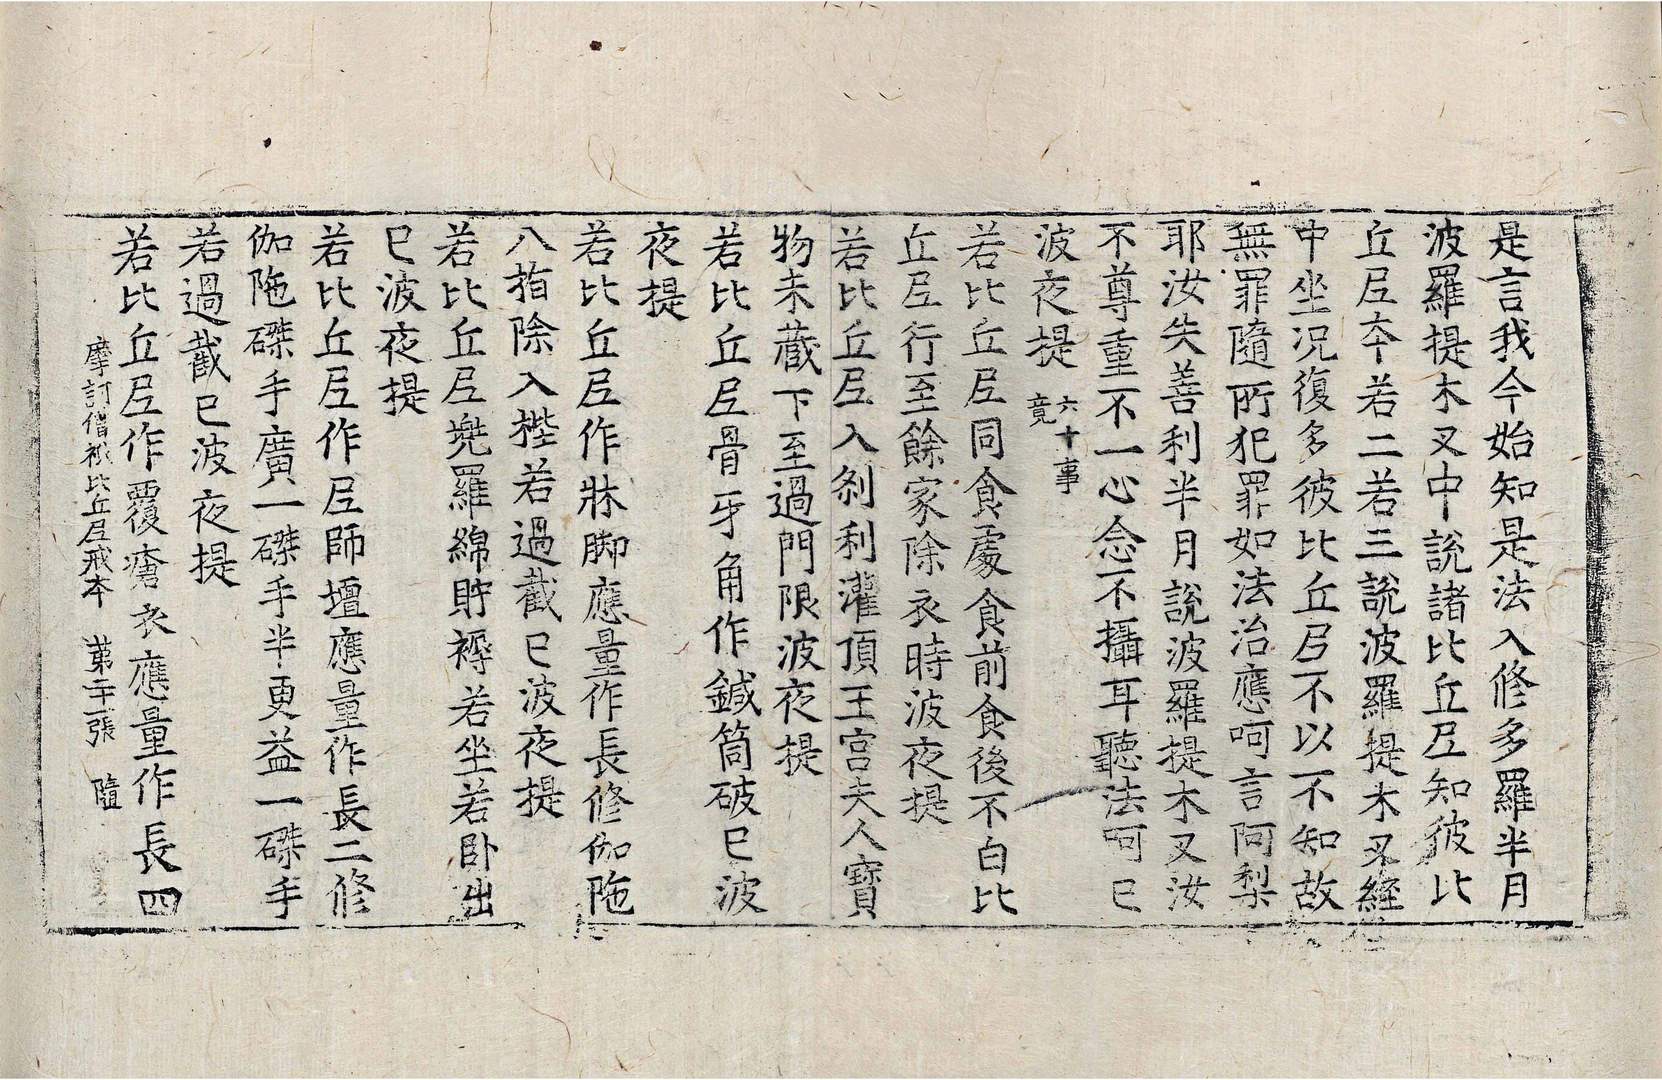 是言我今始知是法入修多羅半月
波羅提木叉中說諸比丘尼知彼比
丘尼夲若二若三說波羅提木叉經
中坐況復多彼比丘尼不以不知故
無罪隨所犯罪如法治應呵言阿梨
耶汝失善利半月說波羅提木叉汝
不尊重不一心念不攝耳聽法呵已
波夜提 六十事竟
若比丘尼同食處食前食後不白比
丘尼行至餘家除衣時波夜提
若比丘尼入剎利灌頂王宮夫人寶
物未藏下至過門限波夜提
若比丘尼骨牙角作鍼筒破已波
夜提
若比丘尼作牀脚應量作長修伽陁
八指除入梐若過截已波夜提
若比丘尼兠羅綿貯褥若坐若卧出
已波夜提
若比丘尼作尼師壇應量作長二修
伽陁磔手廣一磔手半更益一磔手
若過截已波夜提
若比丘尼作覆瘡衣應量作長四
摩訶僧祇比丘尼戒本 第二十一張 隨